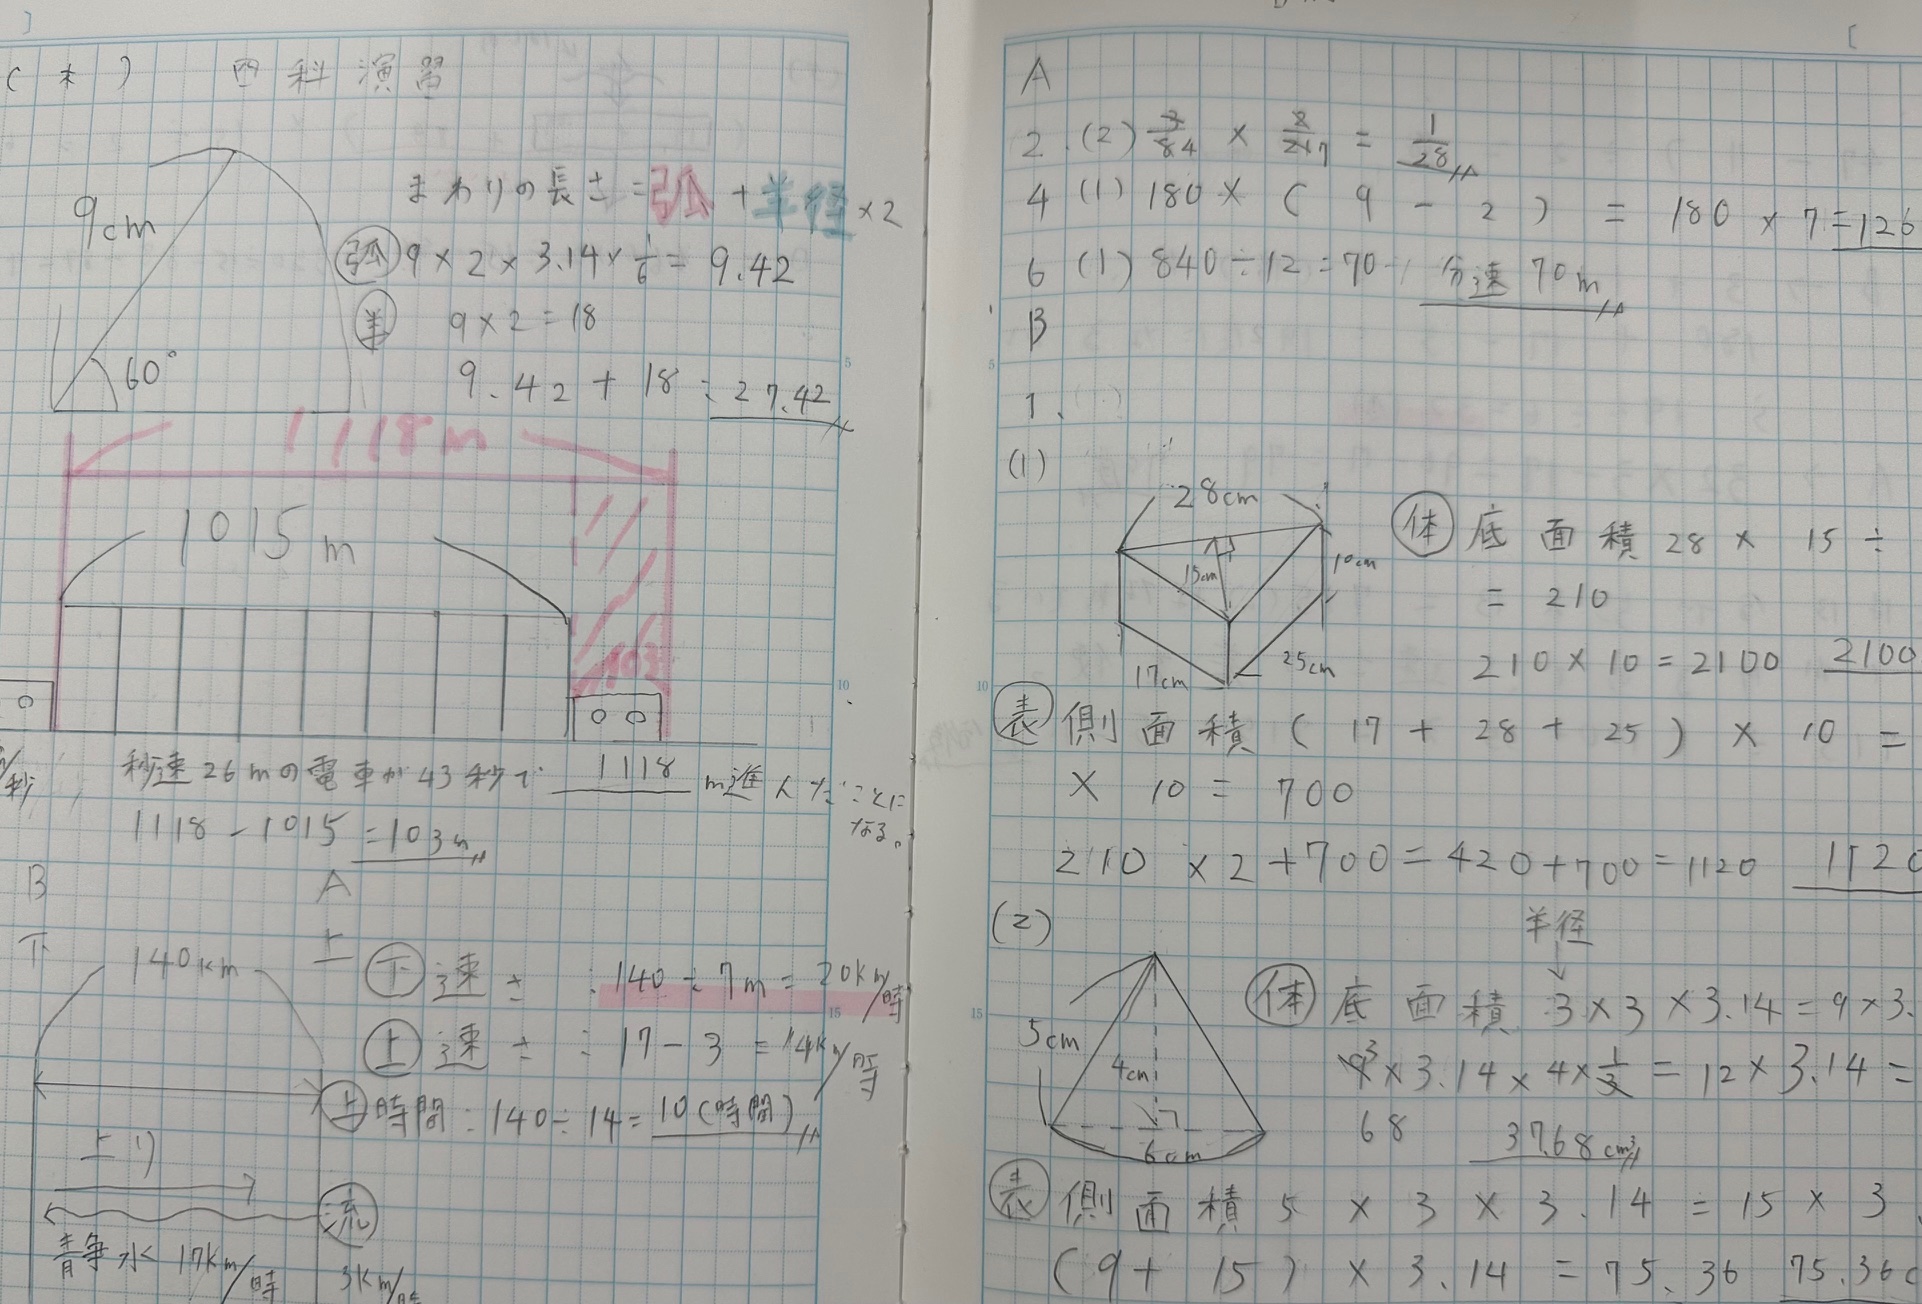 (木) 四科演習
9cm
まわりの長さ=弧+半径×2
弧 9×2×3.14×1/6=9.42
半 9×2=18
60°
9.42+18=27.42
1118m
1015m
103
秒速26mの電車が43秒で 1118 m進んだことになる。
1118-1015=103m
B A
下 140km 上
下 速さ:140÷7m=20km/時
上 速さ:17-3=14km/時
上 時間:140÷14=10(時間)
上り
流
静水 17km/時 3km/時
A
2.(2) 3/84 × 8/217 = 1/28
4 (1) 180×(9-2)=180×7=126
6 (1) 840÷12=70 分速70m
B
1.
(1)
28cm
15cm
10cm
17cm
25cm
体 底面積 28×15÷
=210
210×10=2100 2100
表 側面積(17+28+25)×10=
×10=700
210×2+700=420+700=1120 1120
(2)
半径
5cm
4cm
6cm
体 底面積 3×3×3.14=9×3.
9³×3.14×4×1/3=12×3.14=
68 37.68cm³
表 側面積 5×3×3.14=15×3.
(9+15)×3.14=75.36 75.36c